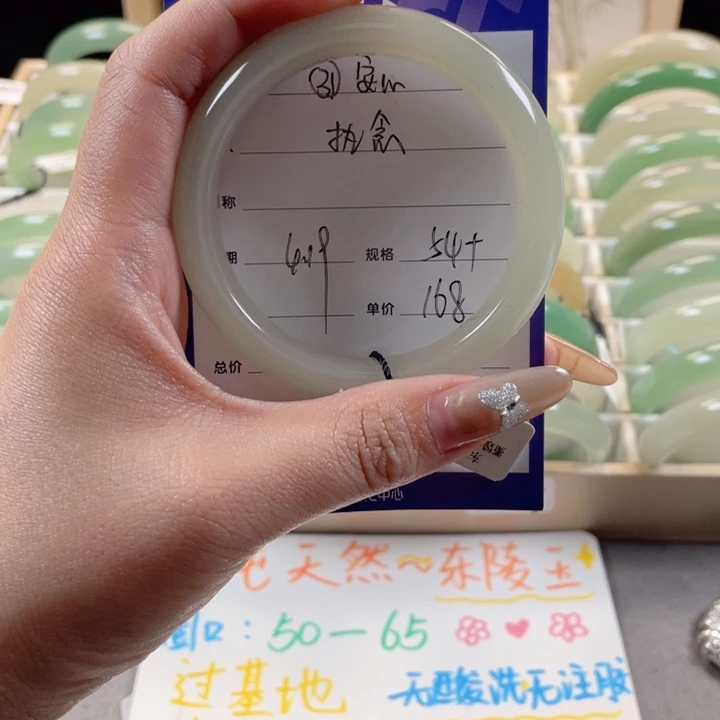 ㉛ 安山
执念
称
期 6.19 规格 54+
单价 168
总价
天然~东陵玉
圈口:50-65
过基地 无酸洗无注胶